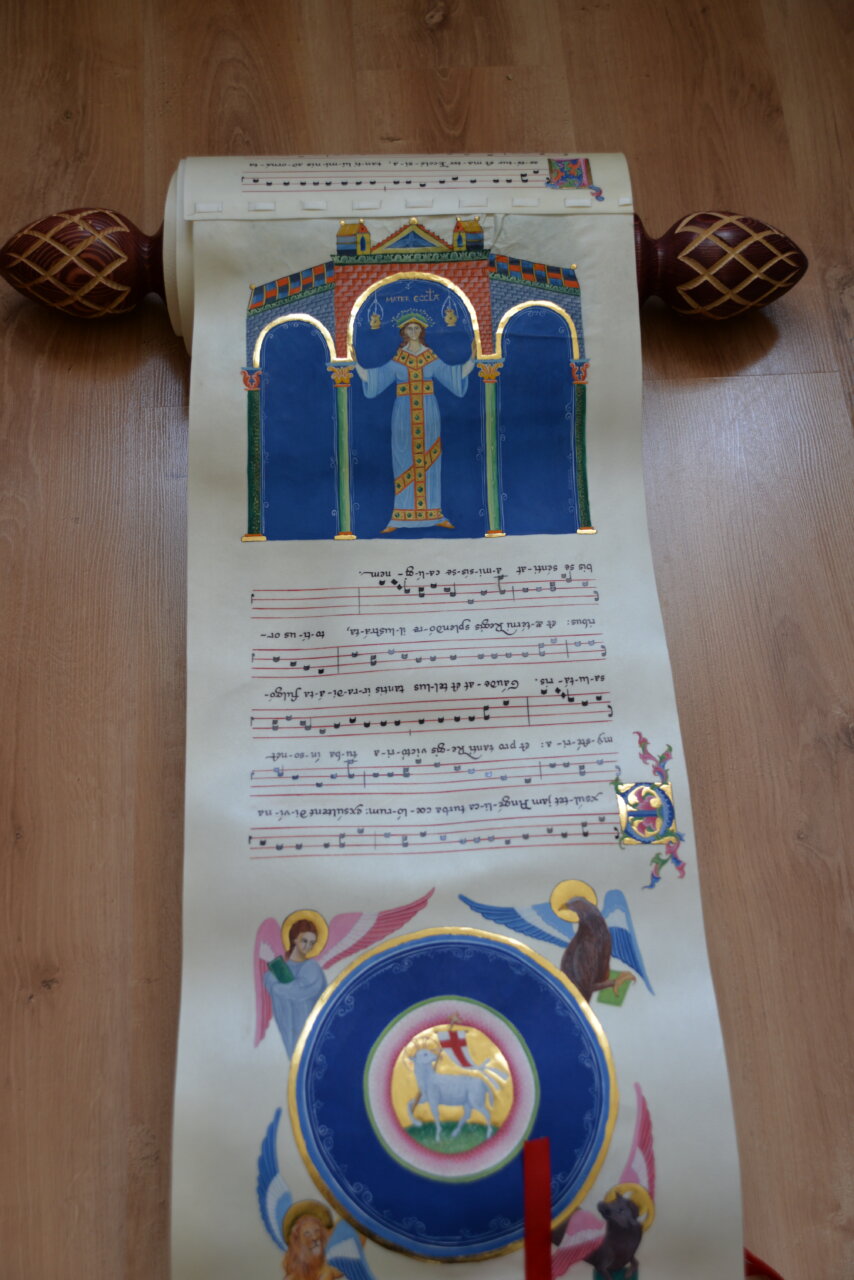 Exsúl-tet jam Angé-li-ca turba cœ-ló-rum: exsúltent di-ví-na
my-sté-ri-a: et pro tanti Re-gis victó-ri-a tu-ba in-so-net
sa-lu-tá-ris. Gáude-at et tel-lus tantis ir-ra-di-á-ta fulgó-
ribus: et æ-térni Regis splendó-re il-lustrá-ta, to-tí-us or-
bis se sénti-at a-mi-sís-se ca-lí-gi-nem.
MATER ECCLA
Læ-té-tur et ma-ter Ecclé-si-a, tan-ti lú-mi-nis ad-orná-ta